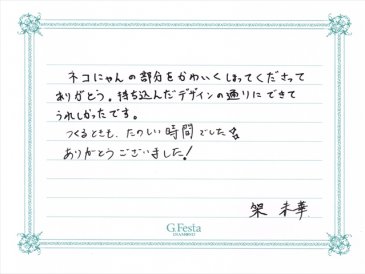 ネコにゃんの部分をかわいくほってくださって
ありがとう。持ち込んだデザインの通りにできて
うれしかったです。
つくるときも、たのしい時間でした
ありがとうございました!
未華
G.Festa